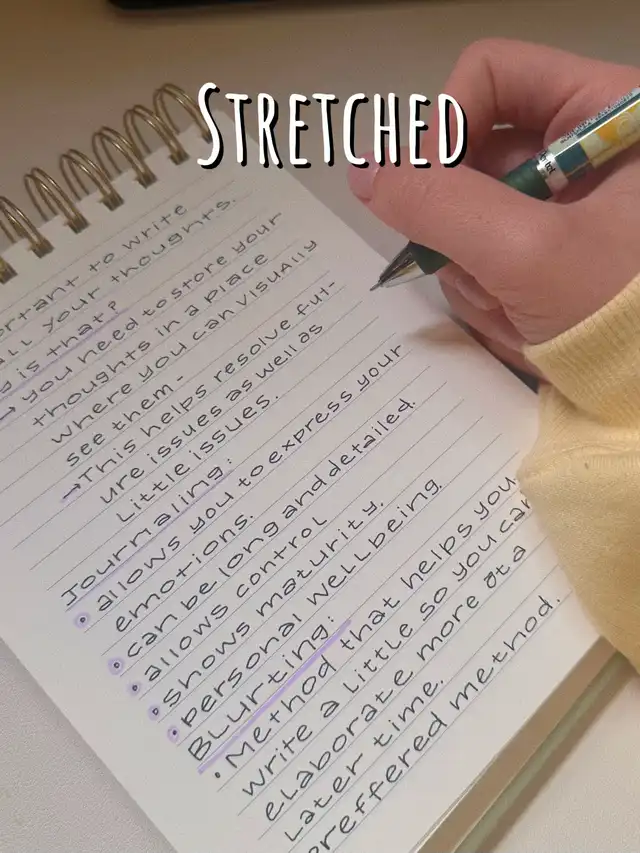 STRETCHED
ortant to write
all your thoughts.
is that?
→ you need to store your
thoughts in a place
where you can visually
see them-
→ This helps resolve fut-
ure issues as well as
Little issues.
Journaling:
• allows you to express your
emotions.
• can be long and detailed.
• allows control
• shows maturity.
• personal wellbeing.
Blurting:
• Method that helps you
write a little so you can
elaborate more at a
later time.
preffered method.